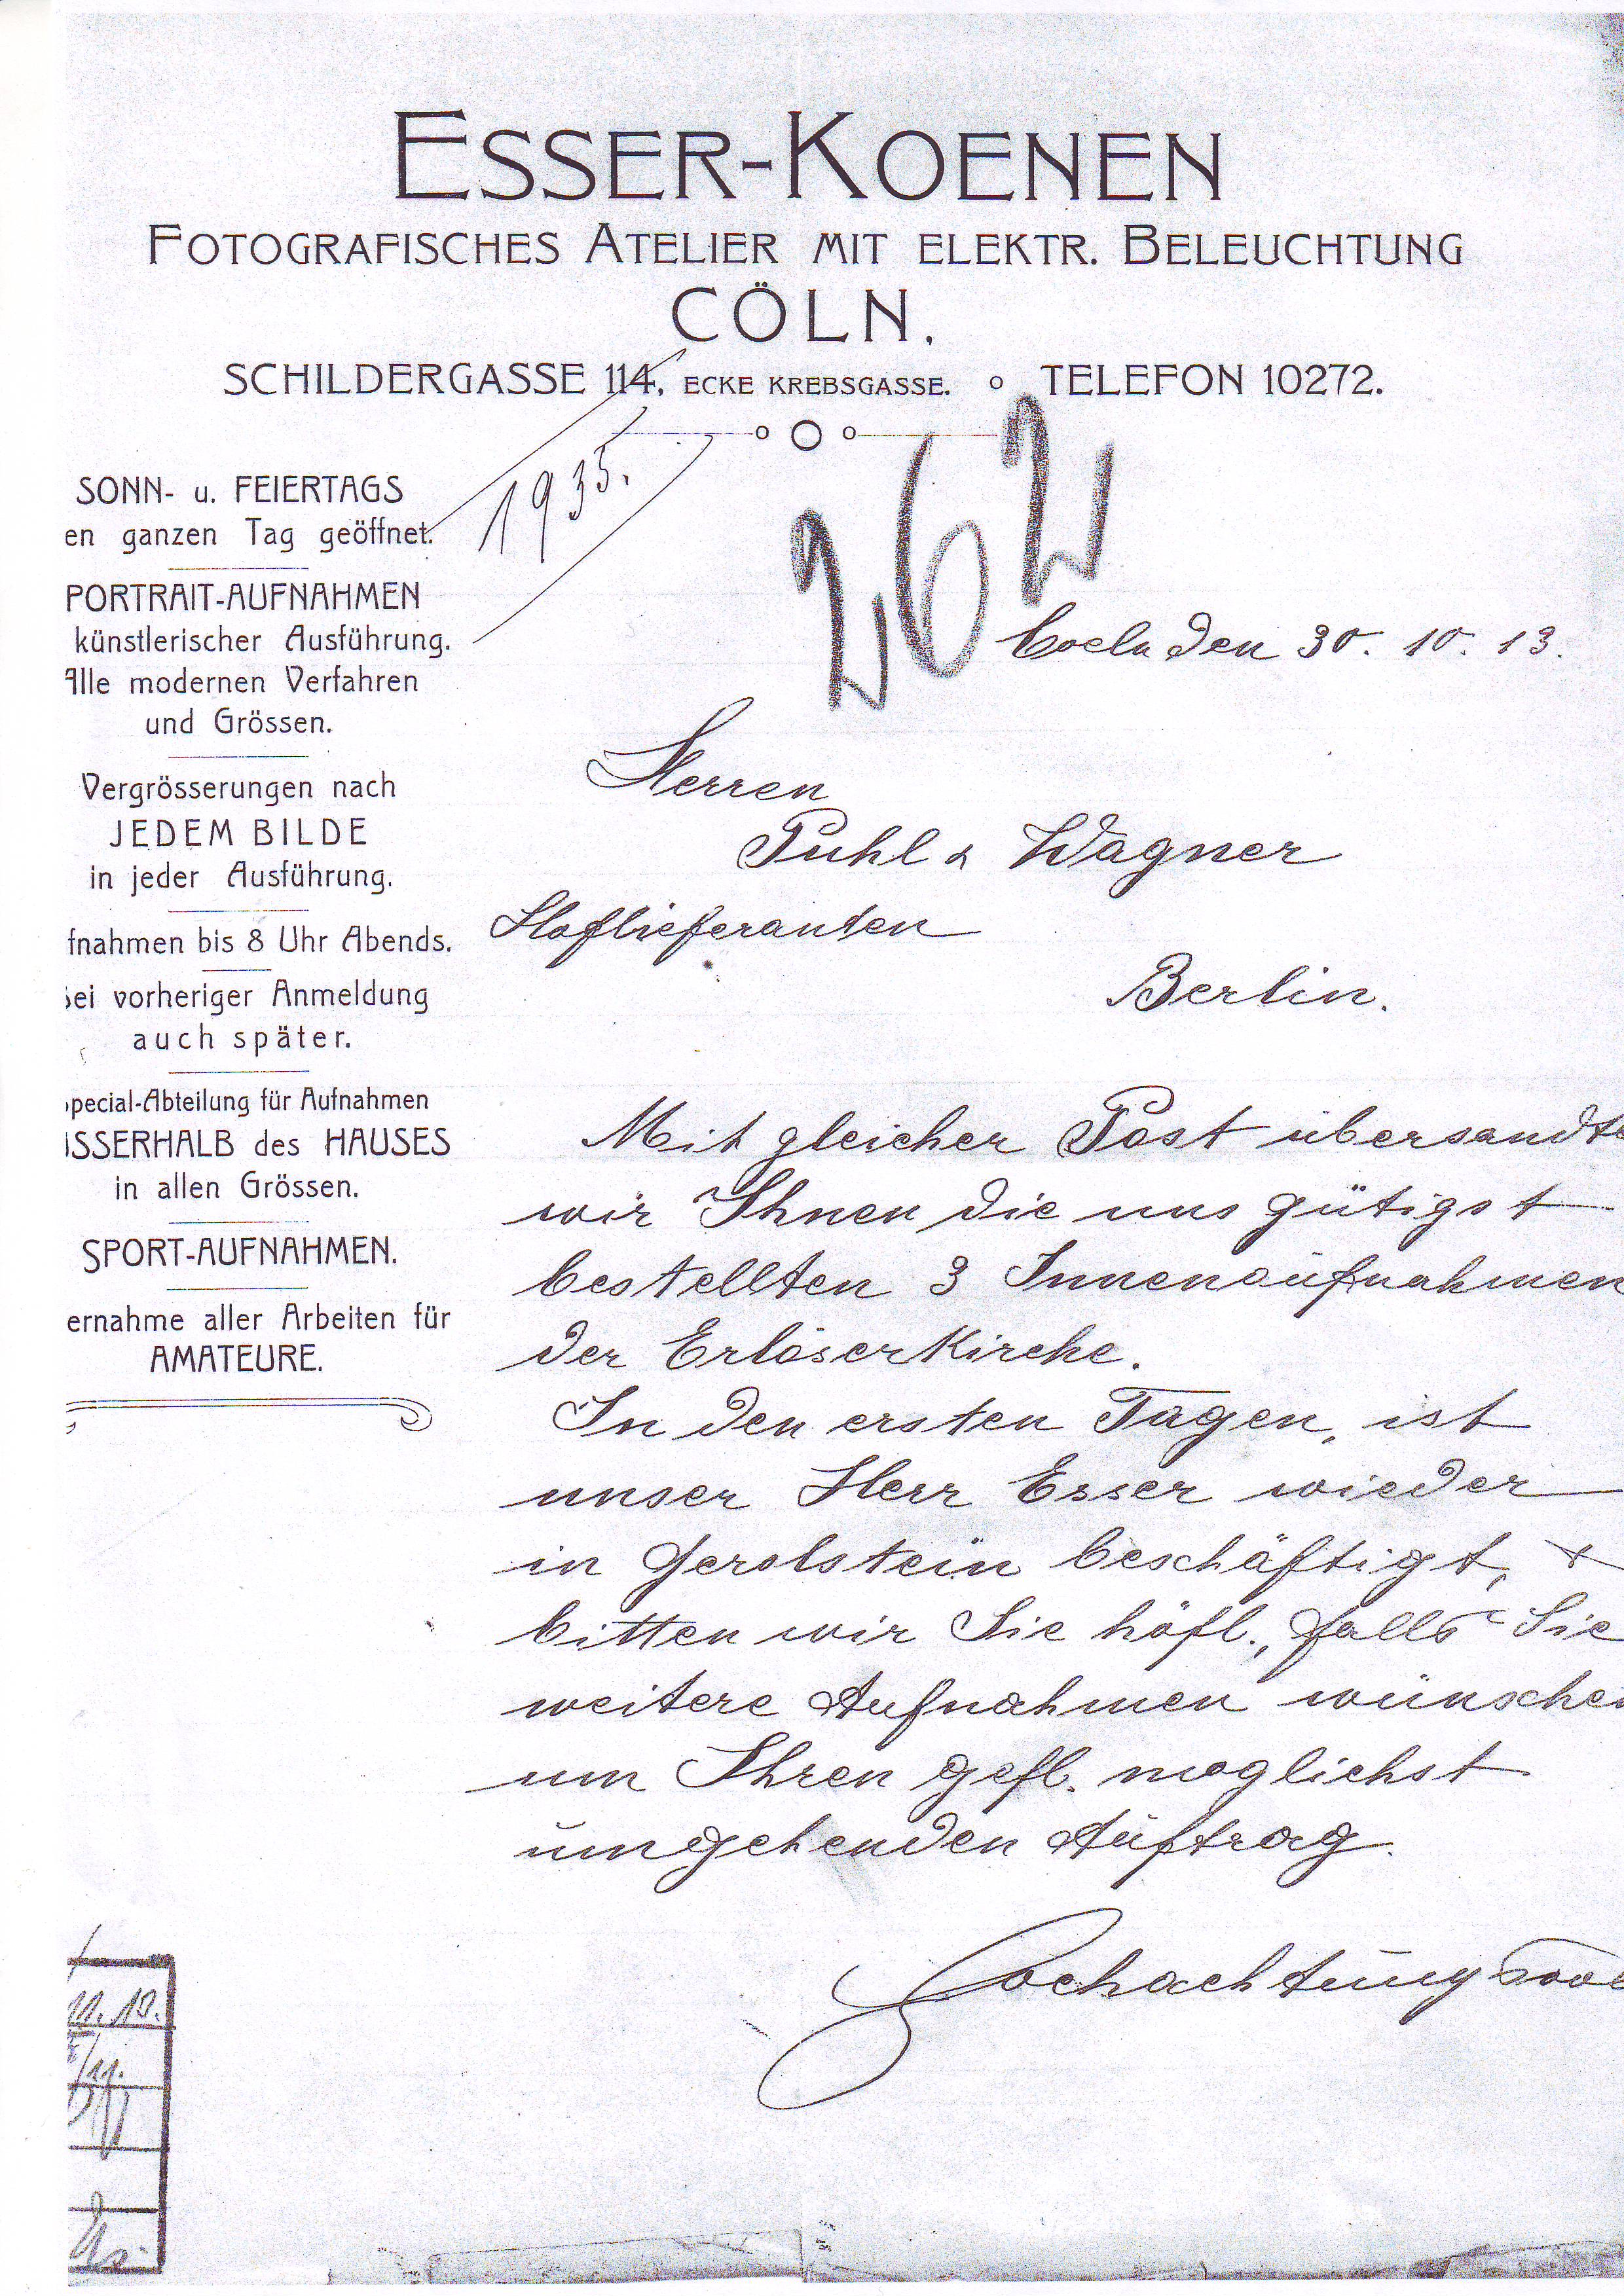 ESSER-KOENEN
FOTOGRAFISCHES ATELIER MIT ELEKTR. BELEUCHTUNG
CÖLN.
SCHILDERGASSE 114, ECKE KREBSGASSE. o TELEFON 10272.
1935.
262
SONN- u. FEIERTAGS
en ganzen Tag geöffnet.
PORTRAIT-AUFNAHMEN
künstlerischer Ausführung.
Alle modernen Verfahren
und Grössen.
Vergrösserungen nach
JEDEM BILDE
in jeder Ausführung.
fnahmen bis 8 Uhr Abends.
ei vorheriger Anmeldung
auch später.
pecial-Abteilung für Aufnahmen
SSERHALB des HAUSES
in allen Grössen.
SPORT-AUFNAHMEN.
ernahme aller Arbeiten für
AMATEURE.
Coeln den 30. 10. 13.
Herren
Puhl & Wagner
Hoflieferanten
Berlin.
Mit gleicher Post übersandte
wir Ihnen die uns gütigst
bestellten 3 Innenaufnahmen
der Erlöserkirche.
In den ersten Tagen, ist
unser Herr Esser wieder
in Gerolstein beschäftigt, &
bitten wir Sie höfl., falls Sie
weitere Aufnahmen wünschen
um Ihren gefl. möglichst
umgehenden Auftrag.
Hochachtungsvoll